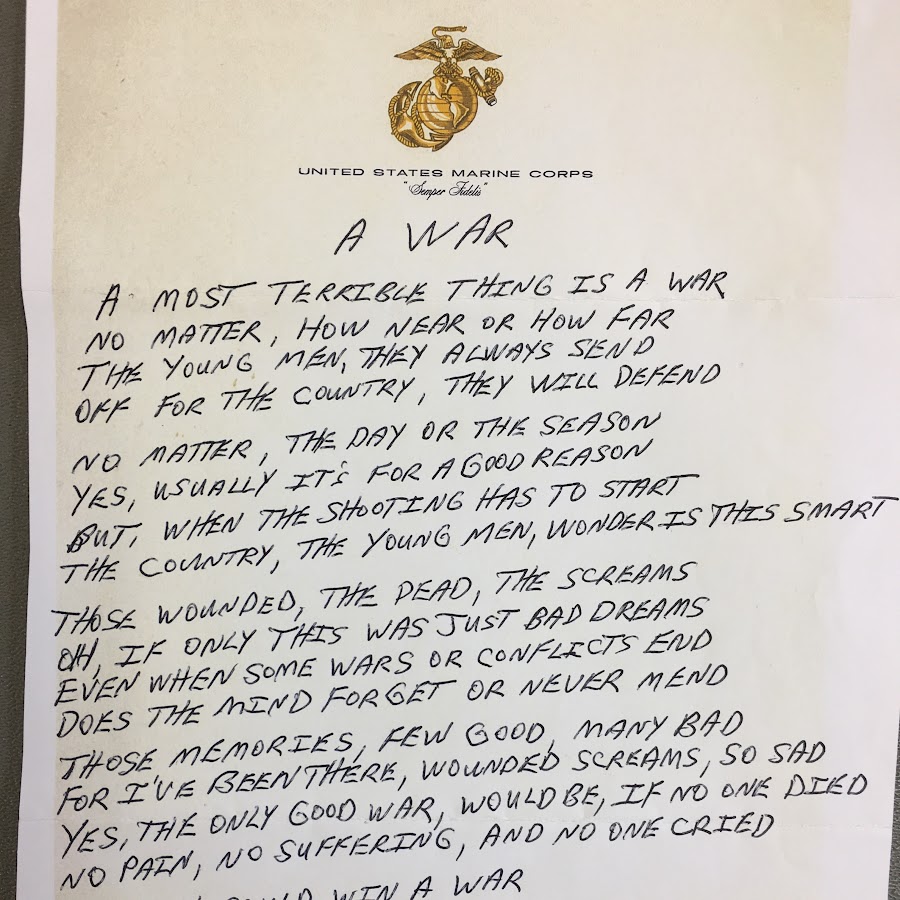 UNITED STATES MARINE CORPS
"Semper Fidelis"
A WAR
A MOST TERRIBLE THING IS A WAR
NO MATTER, HOW NEAR OR HOW FAR
THE YOUNG MEN, THEY ALWAYS SEND
OFF FOR THE COUNTRY, THEY WILL DEFEND
NO MATTER, THE DAY OR THE SEASON
YES, USUALLY IT'S FOR A GOOD REASON
BUT, WHEN THE SHOOTING HAS TO START
THE COUNTRY, THE YOUNG MEN, WONDER IS THIS SMART
THOSE WOUNDED, THE DEAD, THE SCREAMS
OH, IF ONLY THIS WAS JUST BAD DREAMS
EVEN WHEN SOME WARS OR CONFLICTS END
DOES THE MIND FORGET OR NEVER MEND
THOSE MEMORIES, FEW GOOD, MANY BAD
FOR I'VE BEEN THERE, WOUNDED SCREAMS, SO SAD
YES, THE ONLY GOOD WAR, WOULD BE, IF NO ONE DIED
NO PAIN, NO SUFFERING, AND NO ONE CRIED
WIN A WAR